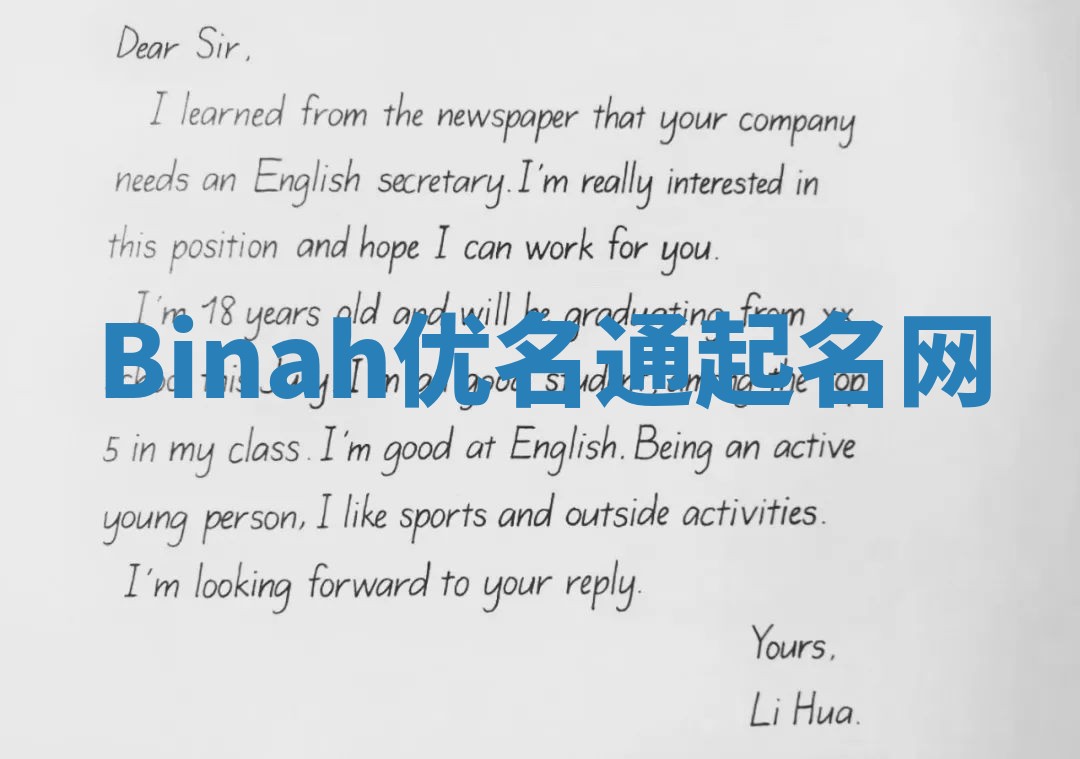 Dear Sir,
I learned from the newspaper that your company
needs an English secretary. I'm really interested in
this position and hope I can work for you.
I'm 18 years old and will be graduating from xx
Binah优名通起名网
school this July. I'm a good student, among the top
5 in my class. I'm good at English. Being an active
young person, I like sports and outside activities.
I'm looking forward to your reply.
Yours,
Li Hua.